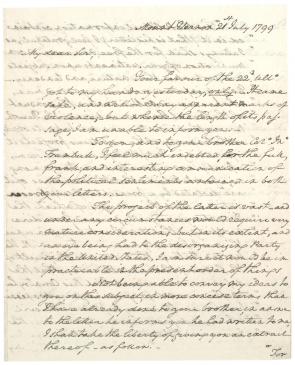 Mount Vernon 21st July 1799
My dear Sir,
Your favour of the 22d ulto
got to my hands yesterday, only. It came
safe, and without any apparent marks of
violence; but whence the length of its pas-
sage, I am unable to inform you.
To you, and to your brother Colo Jno
Trumbull, I feel much indebted for the full,
frank, and interesting communication of
the political sentiments contained in both
your letters.
The project of the latter is vast and
under any circumstances would require very
mature consideration; but in its extent, and
an eye being had to the disorganizing Party
in the United States, I am sure it would be im-
practicable in the present order of things.
Not being able to convey my ideas to
you, on this subject, in more concise terms than
I have already done to your brother, in answer
to the letter he informs you he had written to me
I shall take the liberty of giving you an extract
thereof as follow.
"For